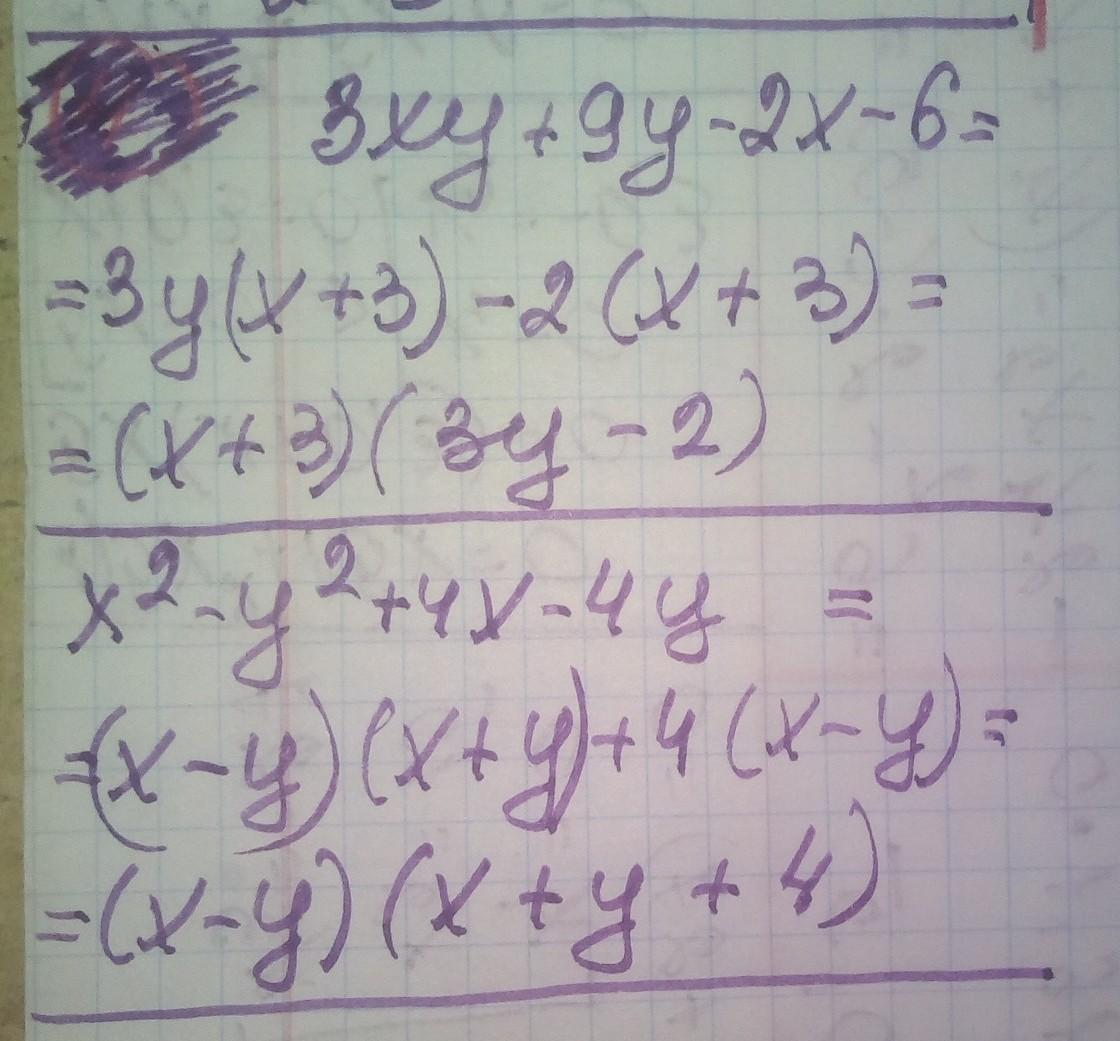 3xy + 9y - 2x - 6 =
= 3y(x + 3) - 2 (x + 3) =
= (x + 3)( 3y - 2)
x² - y² + 4x - 4y =
= (x - y) (x + y) + 4 (x - y) =
= (x - y) (x + y + 4)